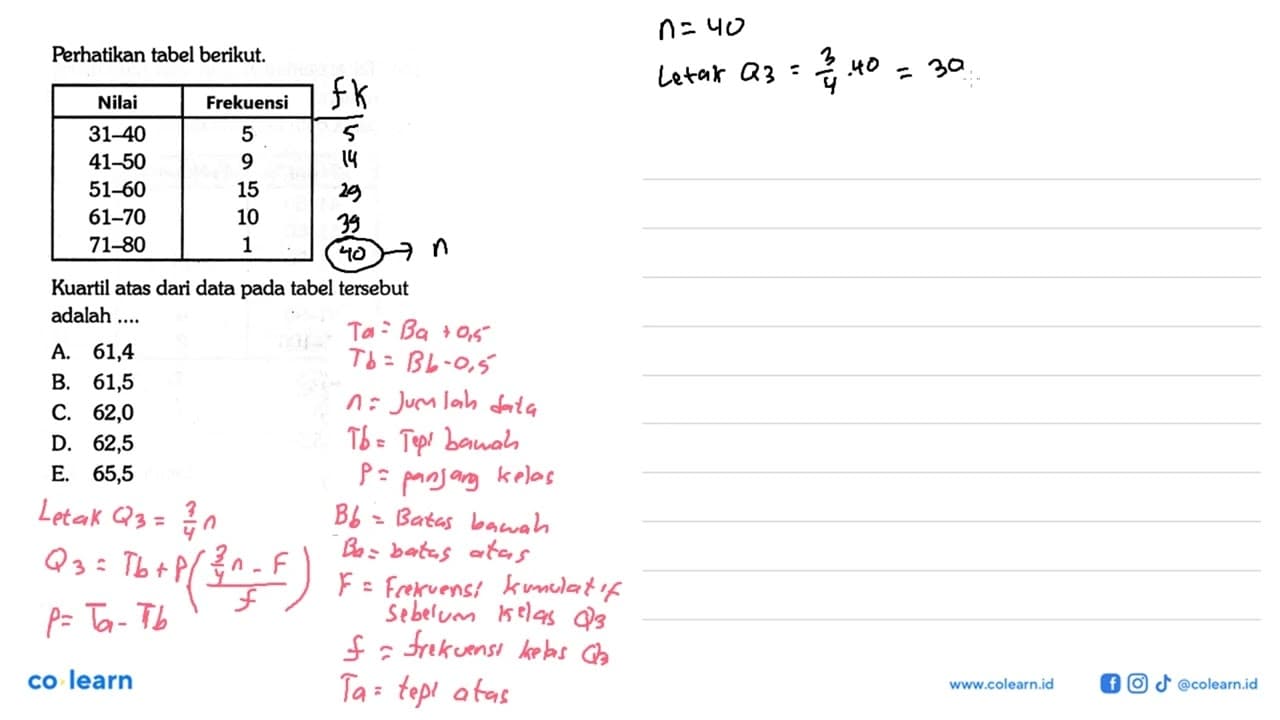 Perhatikan tabel berikut.
Nilai Frekuensi fk
31–40 5 5
41–50 9 14
51–60 15 29
61–70 10 39
71–80 1 40 → n
Kuartil atas dari data pada tabel tersebut
adalah ....
A. 61,4
B. 61,5
C. 62,0
D. 62,5
E. 65,5
Letak Q3 = 3/4 n
Q3 = Tb + P( (3/4 n - F) / f )
P = Ta - Tb
Ta = Ba + 0,5
Tb = Bb - 0,5
n = Jumlah data
Tb = Tepi bawah
P = panjang kelas
Bb = Batas bawah
Ba = batas atas
F = Frekuensi kumulatif
sebelum kelas Q3
f = frekuensi kelas Q3
Ta = tepi atas
n = 40
Letak Q3 = 3/4 . 40 = 30
co learn
www.colearn.id
@colearn.id